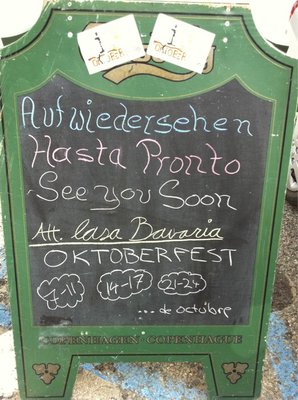 OKTOBER
OKTOBER
Aufwiedersehen
Hasta Pronto
See you Soon
Att. Casa Bavaria
OKTOBERFEST
7-11 14-17 21-24
...de octubre
COPENHAGEN · COPENHAGUE